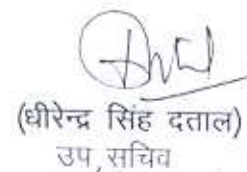 (धीरेन्द्र सिंह दताल)
उप सचिव